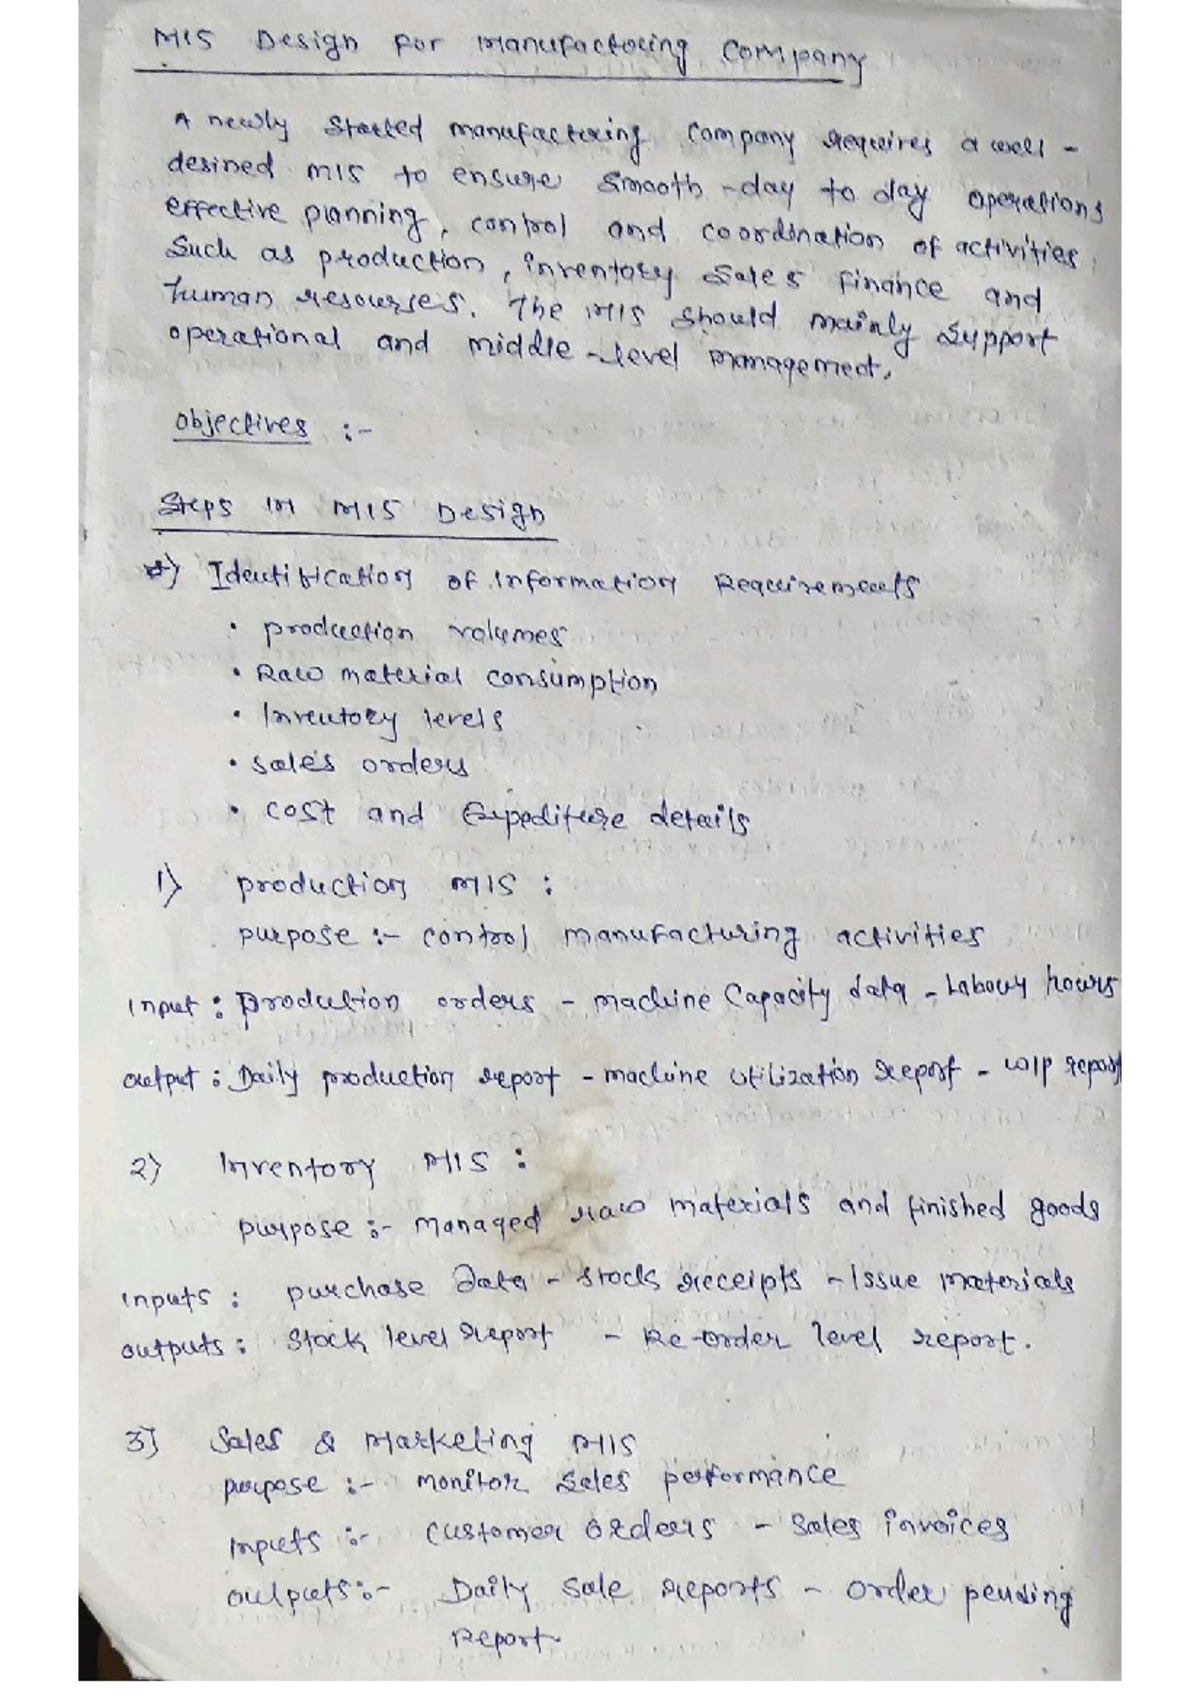 MIS Design for Manufactoring Company
A newly started manufactoring company requires a well -
desined MIS to ensure smooth -day to day operations
effective planning, control and coordination of activities
such as production, inventory sales finance and
human resourses. The MIS should mainly support
operational and middle -level management.
Objectives :-
Steps in MIS Design
Identification of information Requirements
• production volumes
• Raw material consumption
• Inventory levels
• sales orders
• cost and Expediture details
1) production MIS :
purpose :- control manufacturing activities
Input : production orders - machine Capacity data - Labour hours
output : Daily production report - machine utilization report - WIP report
2) Inventory MIS :
purpose :- managed raw materials and finished goods
inputs : purchase data - stock receipts - Issue materials
outputs : Stock level report - Re-order level report.
3) Sales & Marketing MIS
purpose :- monitor sales performance
inputs :- customer orders - sales invoices
outputs :- Daily sale reports - order pending
report